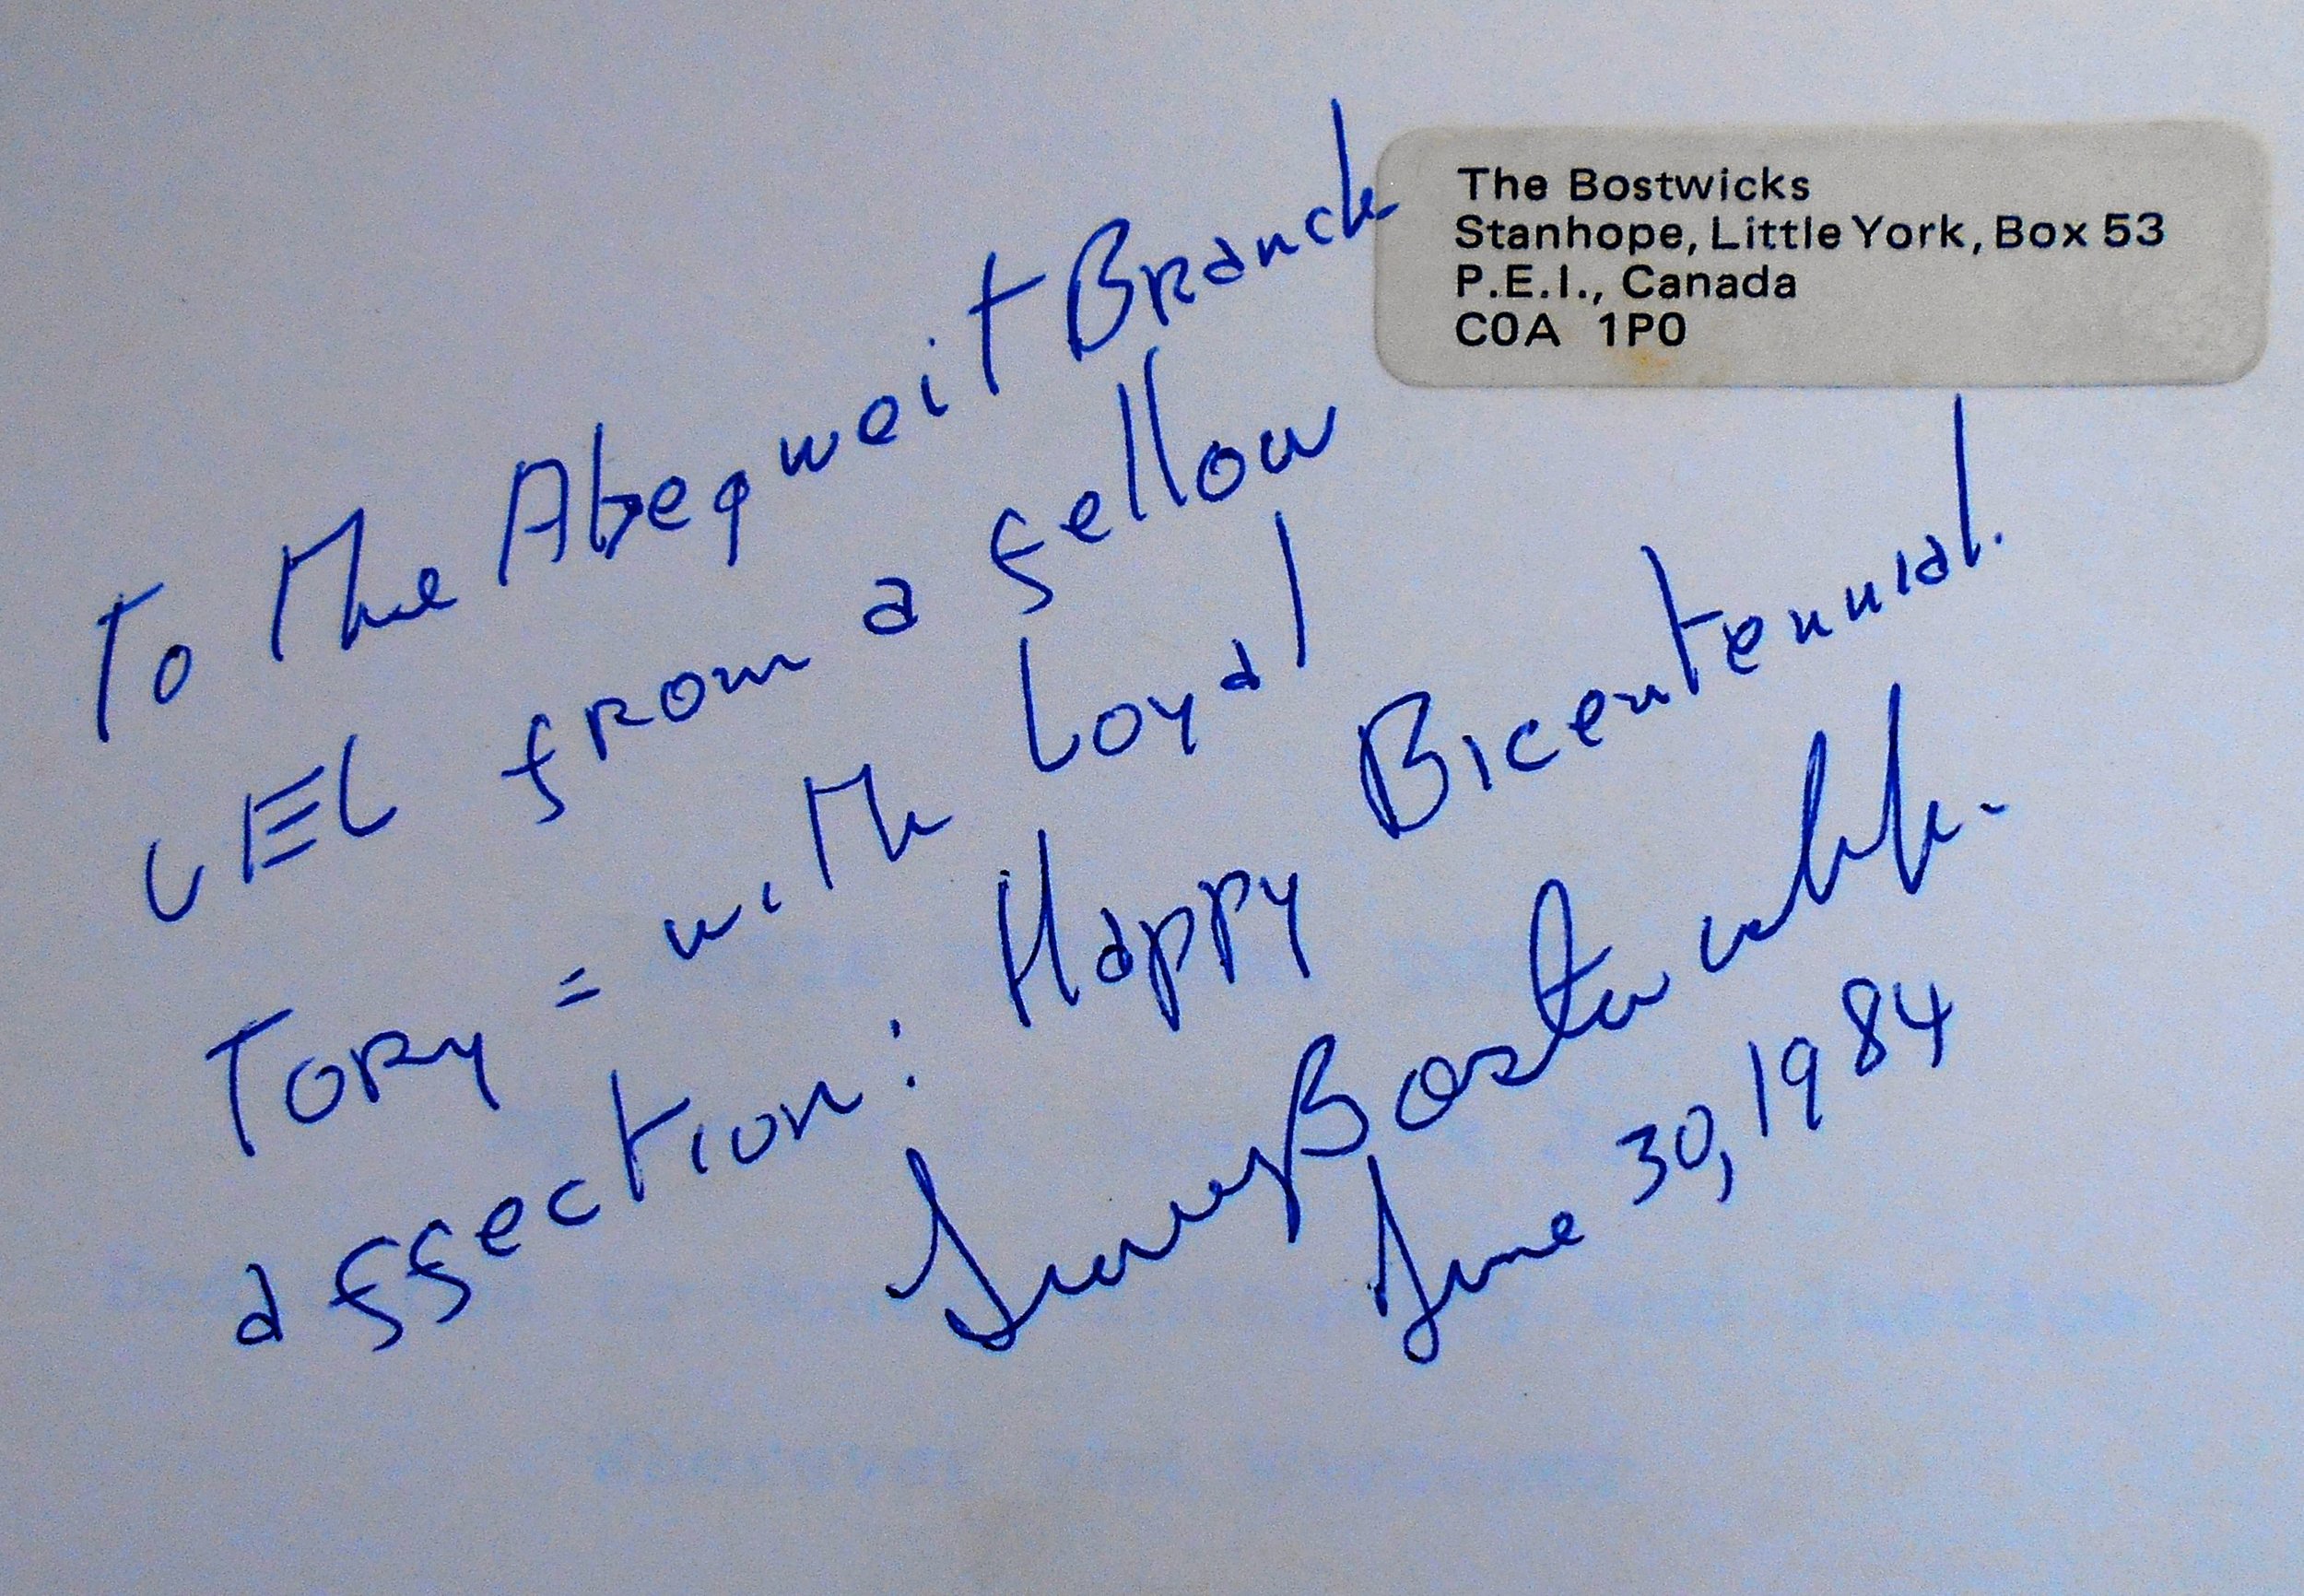 The Bostwicks
Stanhope, Little York, Box 53
P.E.I., Canada
C0A 1P0
To the Abegweit Branch
UEL from a fellow
Tory = with Loyal
affection: Happy Bicentennial.
Bostwick
June 30, 1984